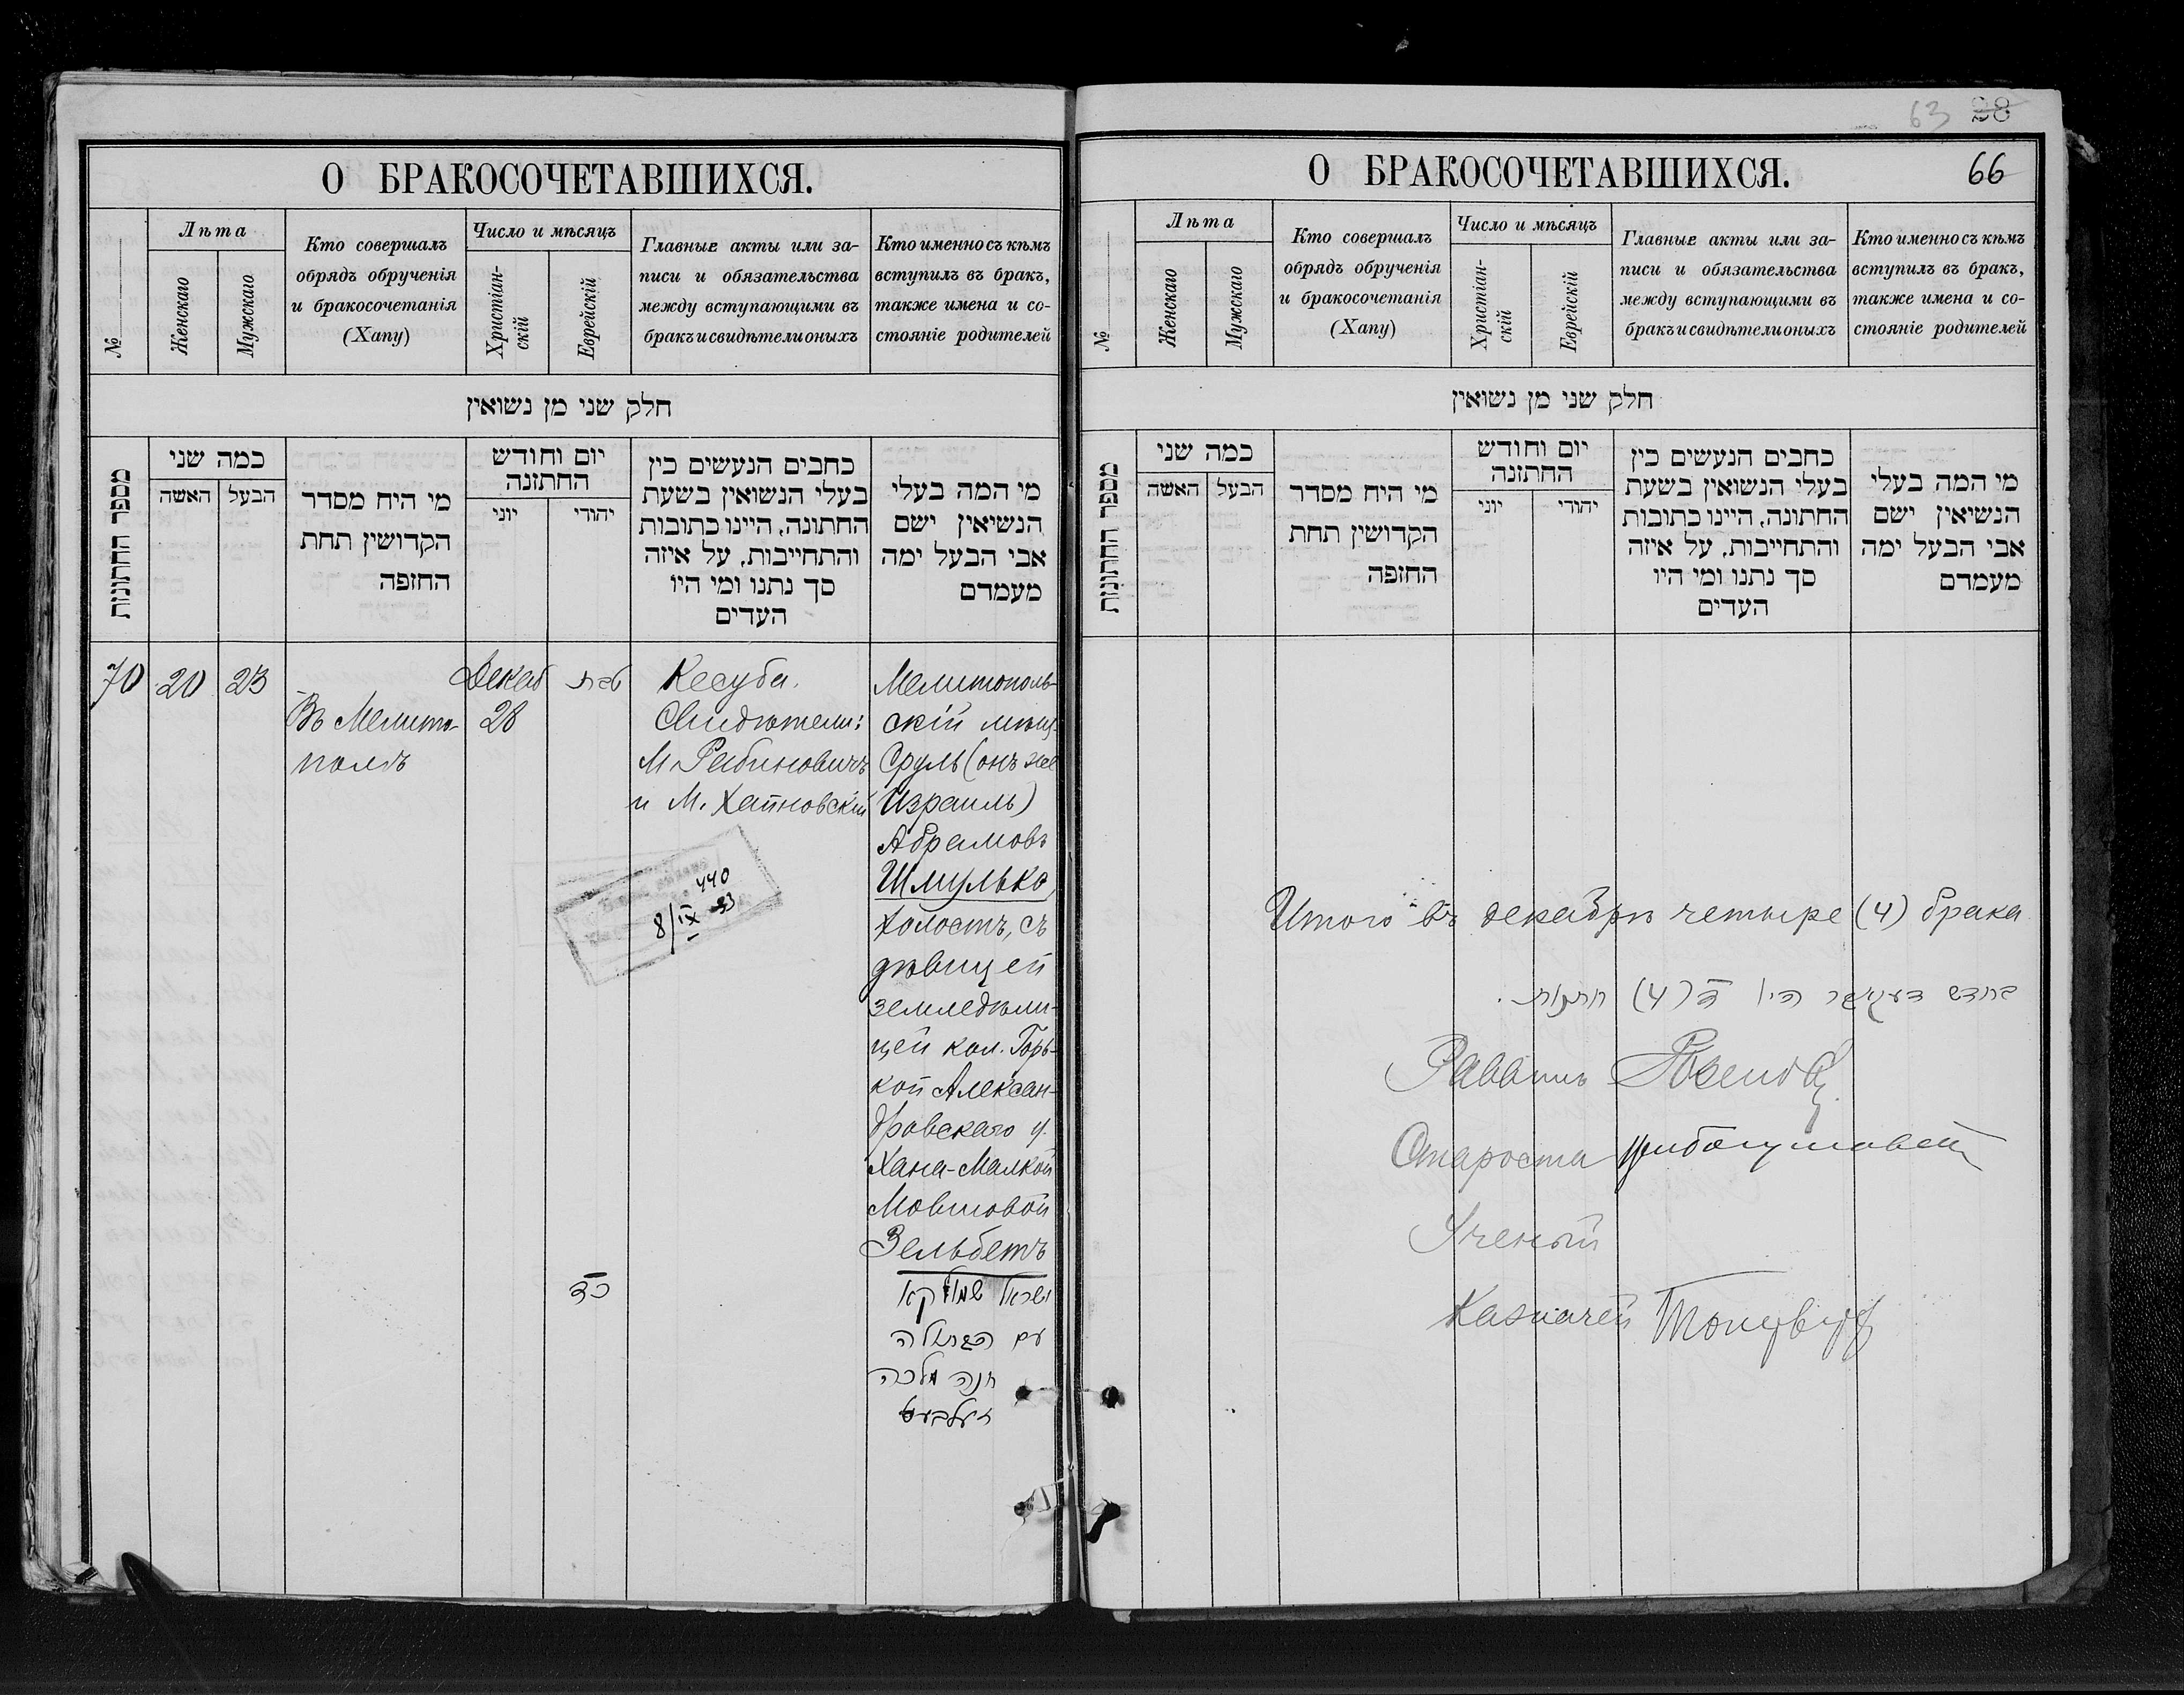 О БРАКОСОЧЕТАВШИХСЯ.
№
Лѣта
Женскаго
Мужскаго
Кто совершалъ
обрядъ обрученія
и бракосочетанія
(Хапу)
Число и мѣсяцъ
Христіан-
скій
Еврейскій
Главные акты или за-
писи и обязательства
между вступающими въ
бракъ и свидѣтели оныхъ
Кто именно съ кѣмъ
вступилъ въ бракъ,
также имена и со-
стояніе родителей
חלק שני מן נשואין
מספר החתונות
כמה שני
האשה
הבעל
מי היח מסדר
הקדושין תחת
החופה
יום וחודש
החתונה
יוני
יהודי
כחבים הנעשים כין
בעלי הנשואין בשעת
החתונה, היינו כתובות
והתחייבות, על איזה
סך נתנו ומי היו
העדים
מי המה בעלי
הנשיאין ישם
אבי הבעל ימה
מעמדם
70
20
23
Въ Мелито-
полѣ
Декаб
28
טבת
כד
Кесуба.
Свидѣтели:
М. Рабиновичъ
и М. Хайновскій
440
8/IX 33
Мелитополь-
скій мѣщ.
Сруль (онъ же
Израиль)
Абрамовъ
Шмулько,
холостъ, съ
дѣвицей
земледѣли-
цей кол. Горь-
кой Алексан-
дровскаго у.
Хана-Малкой
Мовшовой
Зельбетъ
ישראל שמולקא
עם הבתולה
חנה מלכה
זעלבעט
63 28
О БРАКОСОЧЕТАВШИХСЯ.
66
№
Лѣта
Женскаго
Мужскаго
Кто совершалъ
обрядъ обрученія
и бракосочетанія
(Хапу)
Число и мѣсяцъ
Христіан-
скій
Еврейскій
Главные акты или за-
писи и обязательства
между вступающими въ
бракъ и свидѣтели оныхъ
Кто именно съ кѣмъ
вступилъ въ бракъ,
также имена и со-
стояніе родителей
חלק שני מן נשואין
מספר החתונות
כמה שני
האשה
הבעל
מי היח מסדר
הקדושין תחת
החופה
יום וחודש
החתונה
יוני
יהודי
כחבים הנעשים כין
בעלי הנשואין בשעת
החתונה, היינו כתובות
והתחייבות, על איזה
סך נתנו ומי היו
העדים
מי המה בעלי
הנשיאין ישם
אבי הבעל ימה
מעמדם
Итого въ декабрѣ четыре (4) брака
בחדש דעקאבר היו ד (4) חתונות.
Раввинъ
Староста
Ученый
Казначей